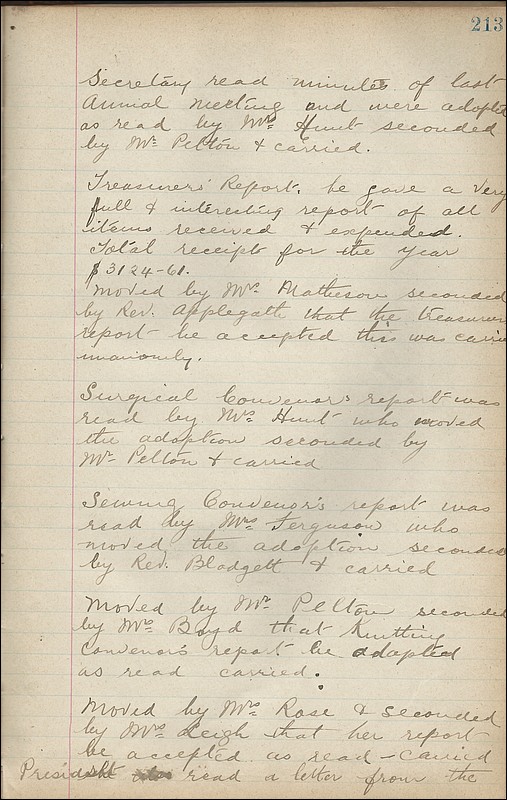 213
Secretary read minutes of last
Annual meeting and were adopted
as read by Mrs Hunt seconded
by Mr Pelton & carried.
Treasurer's Report. he gave a very
full & interesting report of all
items received & expended.
Total receipts for the year
$3124-61.
Moved by Mrs. Matheson seconded
by Rev. Applegath that the treasurer
report be accepted this was carrie
unaniomly.
Surgical Convenor's report was
read by Mrs Hunt who moved
the adoption seconded by
Mr Pelton & carried
Sewing Convenor's report was
read by Mrs Ferguson who
moved the adoption seconded
by Rev. Blodgett & carried
Moved by Mr. Pelton seconded
by Mrs Boyd that Knitting
Convenor's report be adopted
as read carried.
Moved by Mrs Rose & seconded
by Mrs Leigh that her report
be accepted as read - carried
President read a letter from the